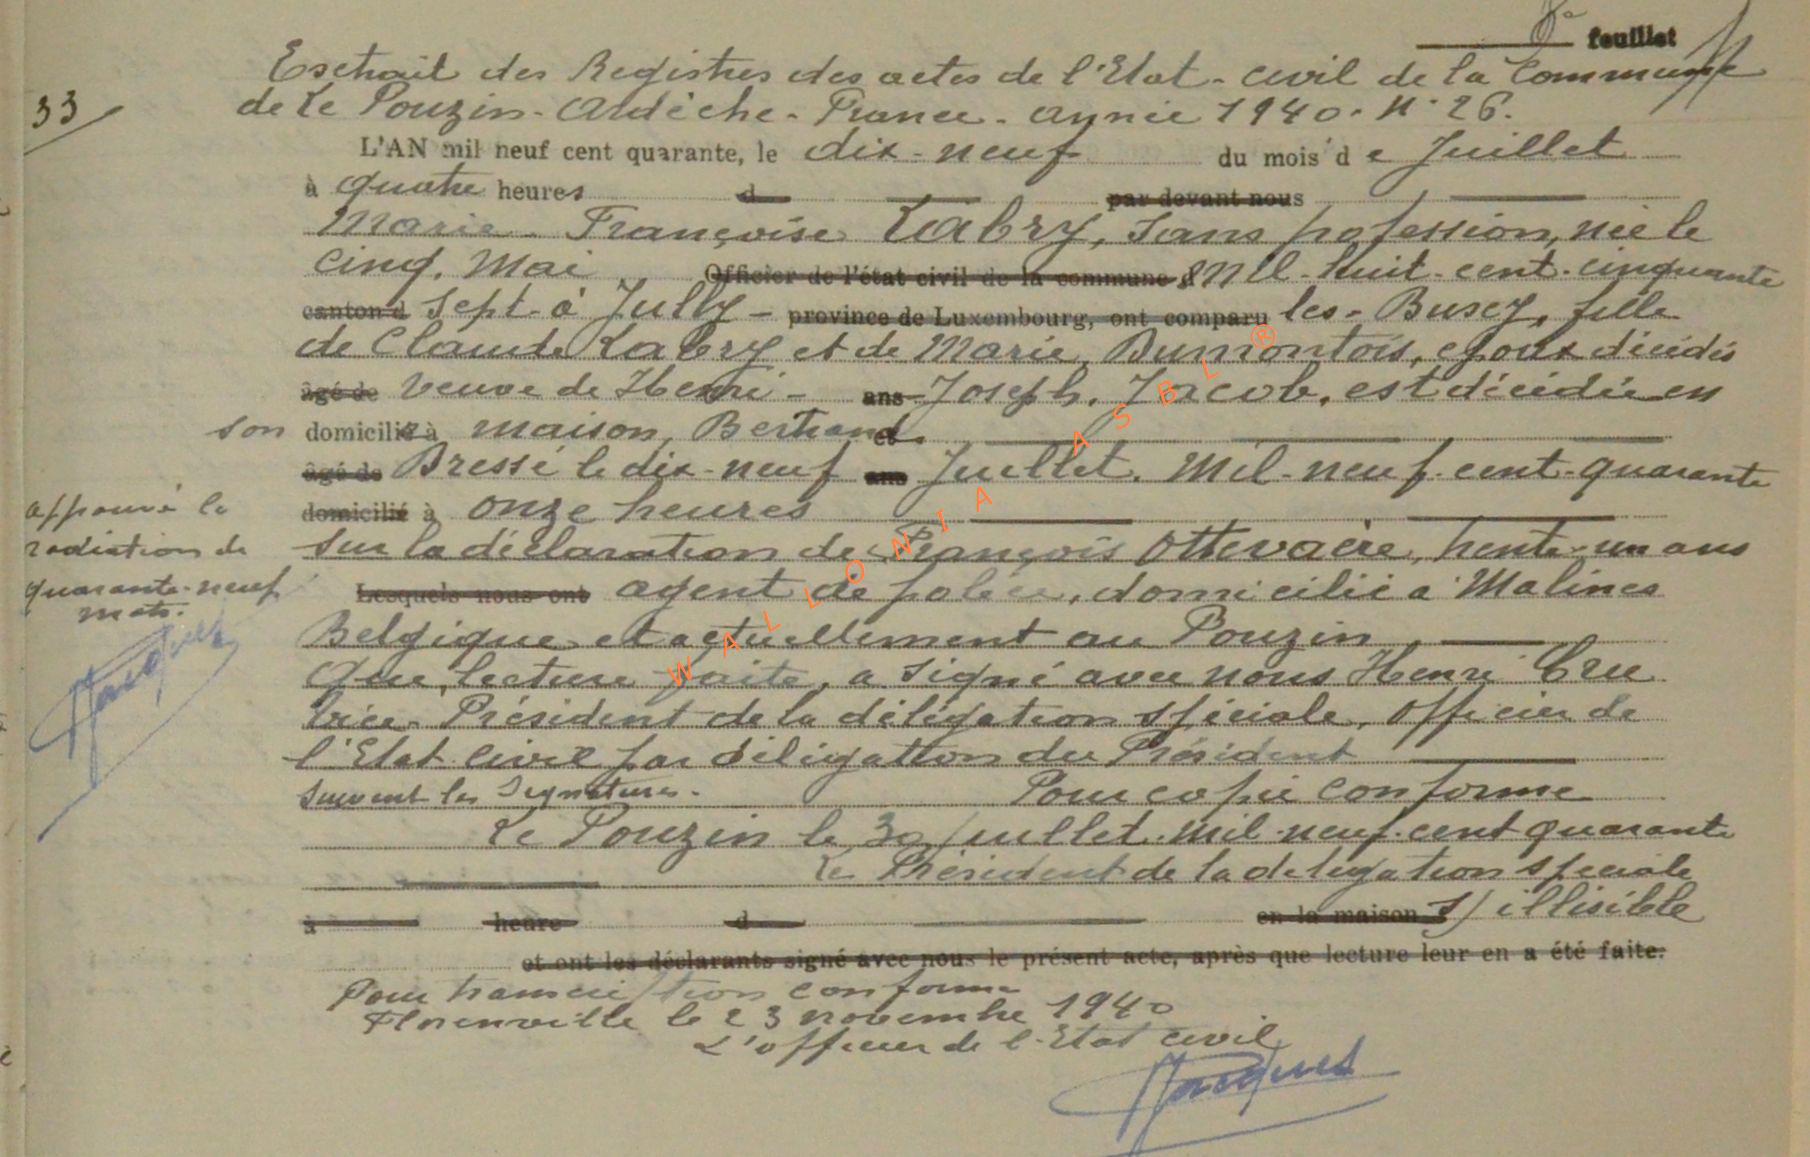 8e feuillet
Extrait des Registres des actes de l'Etat-civil de la Commune
33
de Le Pouzin-Ardèche-France-année 1940. N° 26.
L'AN mil neuf cent quarante, le dix-neuf du mois de Juillet
à quatre heures d par devant nous
Marie-Françoise Labry, sans profession, née le
cinq. Mai Officier de l'état civil de la commune d Mil-huit-cent-cinquante
canton d sept-à Jully- province de Luxembourg, ont comparu les-Buxey, fille
de Claude Labry et de Marie, Dumontois, époux décédés
âgé de veuve de Henri- ans Joseph. Jacob. est décédée en
son domicilie à maison, Bertrand. et
âgé de Bressé le dix-neuf ans Juillet. Mil-neuf-cent-quarante
domicilié à onze heures
sur la déclaration de François Ottevaère, trente-un ans
Lesquels nous ont agent de police, domicilié à Malines
Belgique et actuellement au Pouzin
Que, lecture faite, a signé avec nous Henri Cru
Vice-Président de la délégation spéciale, officier de
l'Etat civil par délégation du Président
suivent les signatures. Pour copie conforme
Le Pouzin le 30 Juillet. Mil-neuf-cent quarante
Le Président de la délégation spéciale
à heure d en la maison s/ illisible
et ont les déclarants signé avec nous le présent acte, après que lecture leur en a été faite.
Pour transcription conforme
Florenville le 23 novembre 1940
L'officier de l'Etat civil
Jacques
approuvé la
radiation de
quarante-neuf
mots.
Jacques
WALLONIA ASBL ®